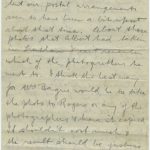 but our postal arrangements
seem to have been a bit upset
about that time. About those
photos that Albert had taken
in
which of the photographers he
went to. I think the best way
for Mrs would be to take
the photo to Rogers or any of the
photographers & have it copied
it shouldn't cost much &
the result should be just as